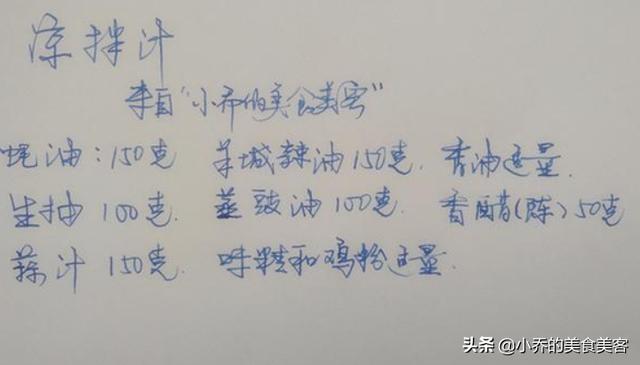 凉拌汁
来自"小乔的美食美客"
蚝油:150克 羊城辣油150克. 香油适量.
生抽 100克. 蒸豉油100克. 香醋(陈)50克
蒜汁 150克. 味精和鸡粉适量.
头条 @小乔的美食美客